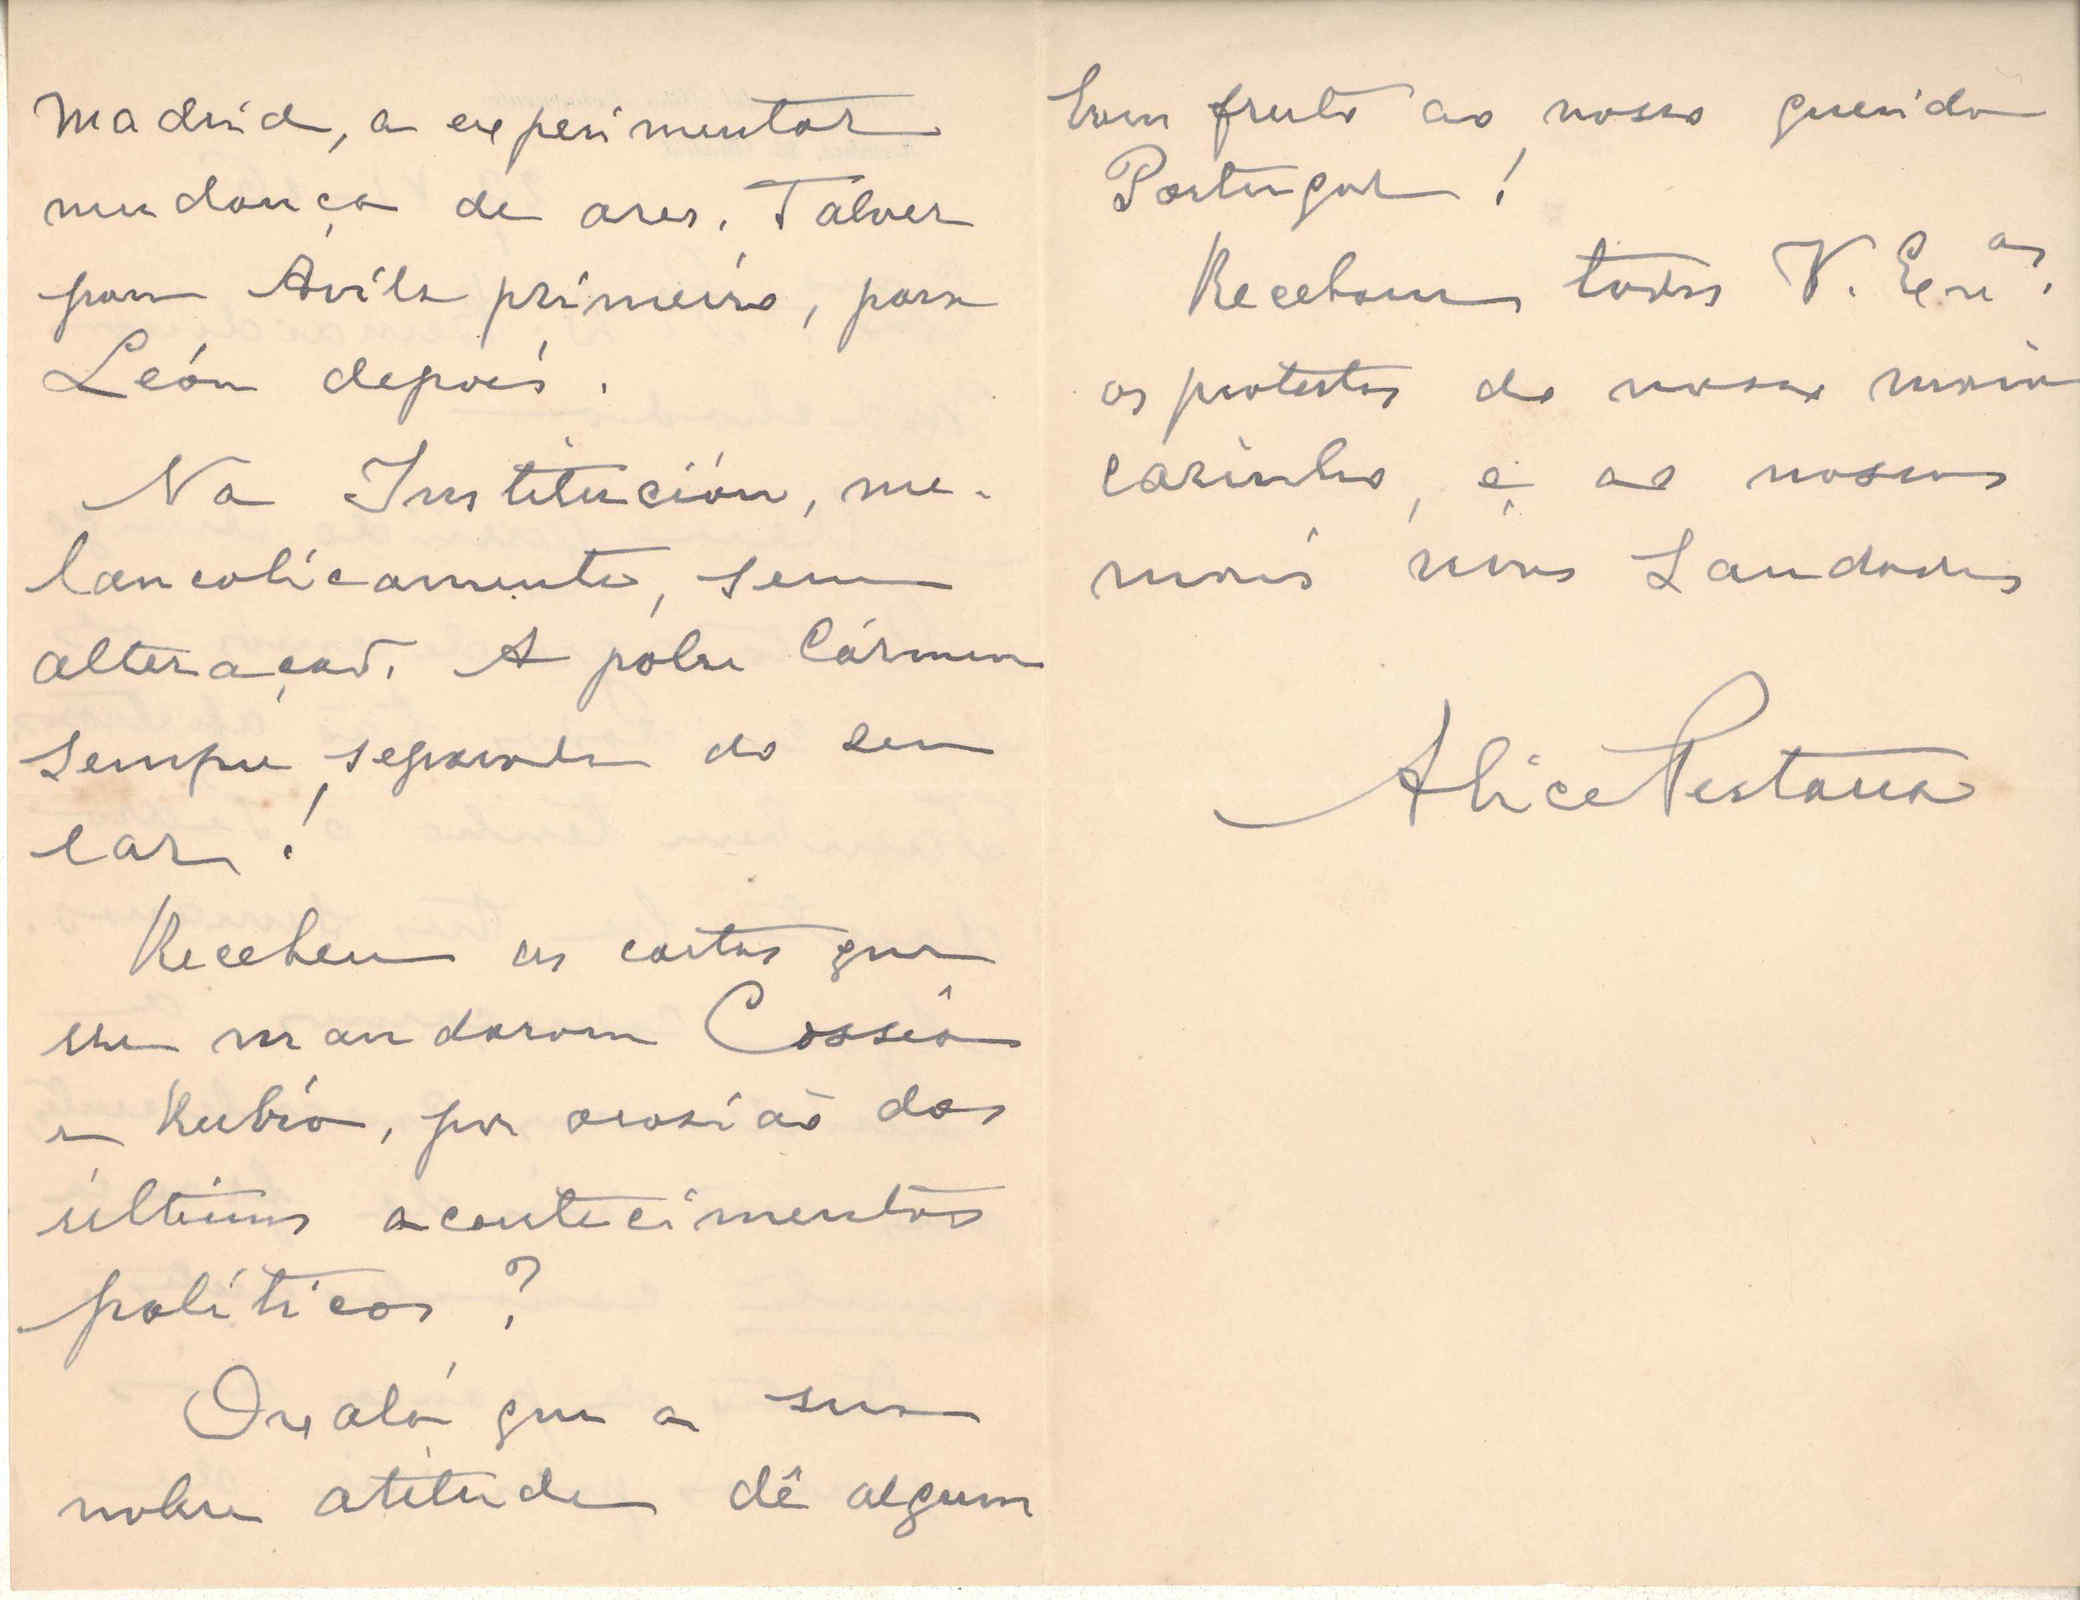 Madrid, a experimentar
mudança de ares. Talvez
para Ávila primeiro, para
León depois.
Na Institución, me-
lancolicamente, sem
alteração. A pobre Cármen
sempre separada do seu
lar!
Receberam as cartas que
lhe mandaram Cossío
e Rubio, por ocasião dos
últimos acontecimentos
políticos?
Oxalá que a sua
nobre atitude dê algum
bom fruto ao nosso querido
Portugal!
Recebam todos V. Exas.
os protestos do nosso maior
carinho, e as nossas
mais vivas saudades
Alice Pestana